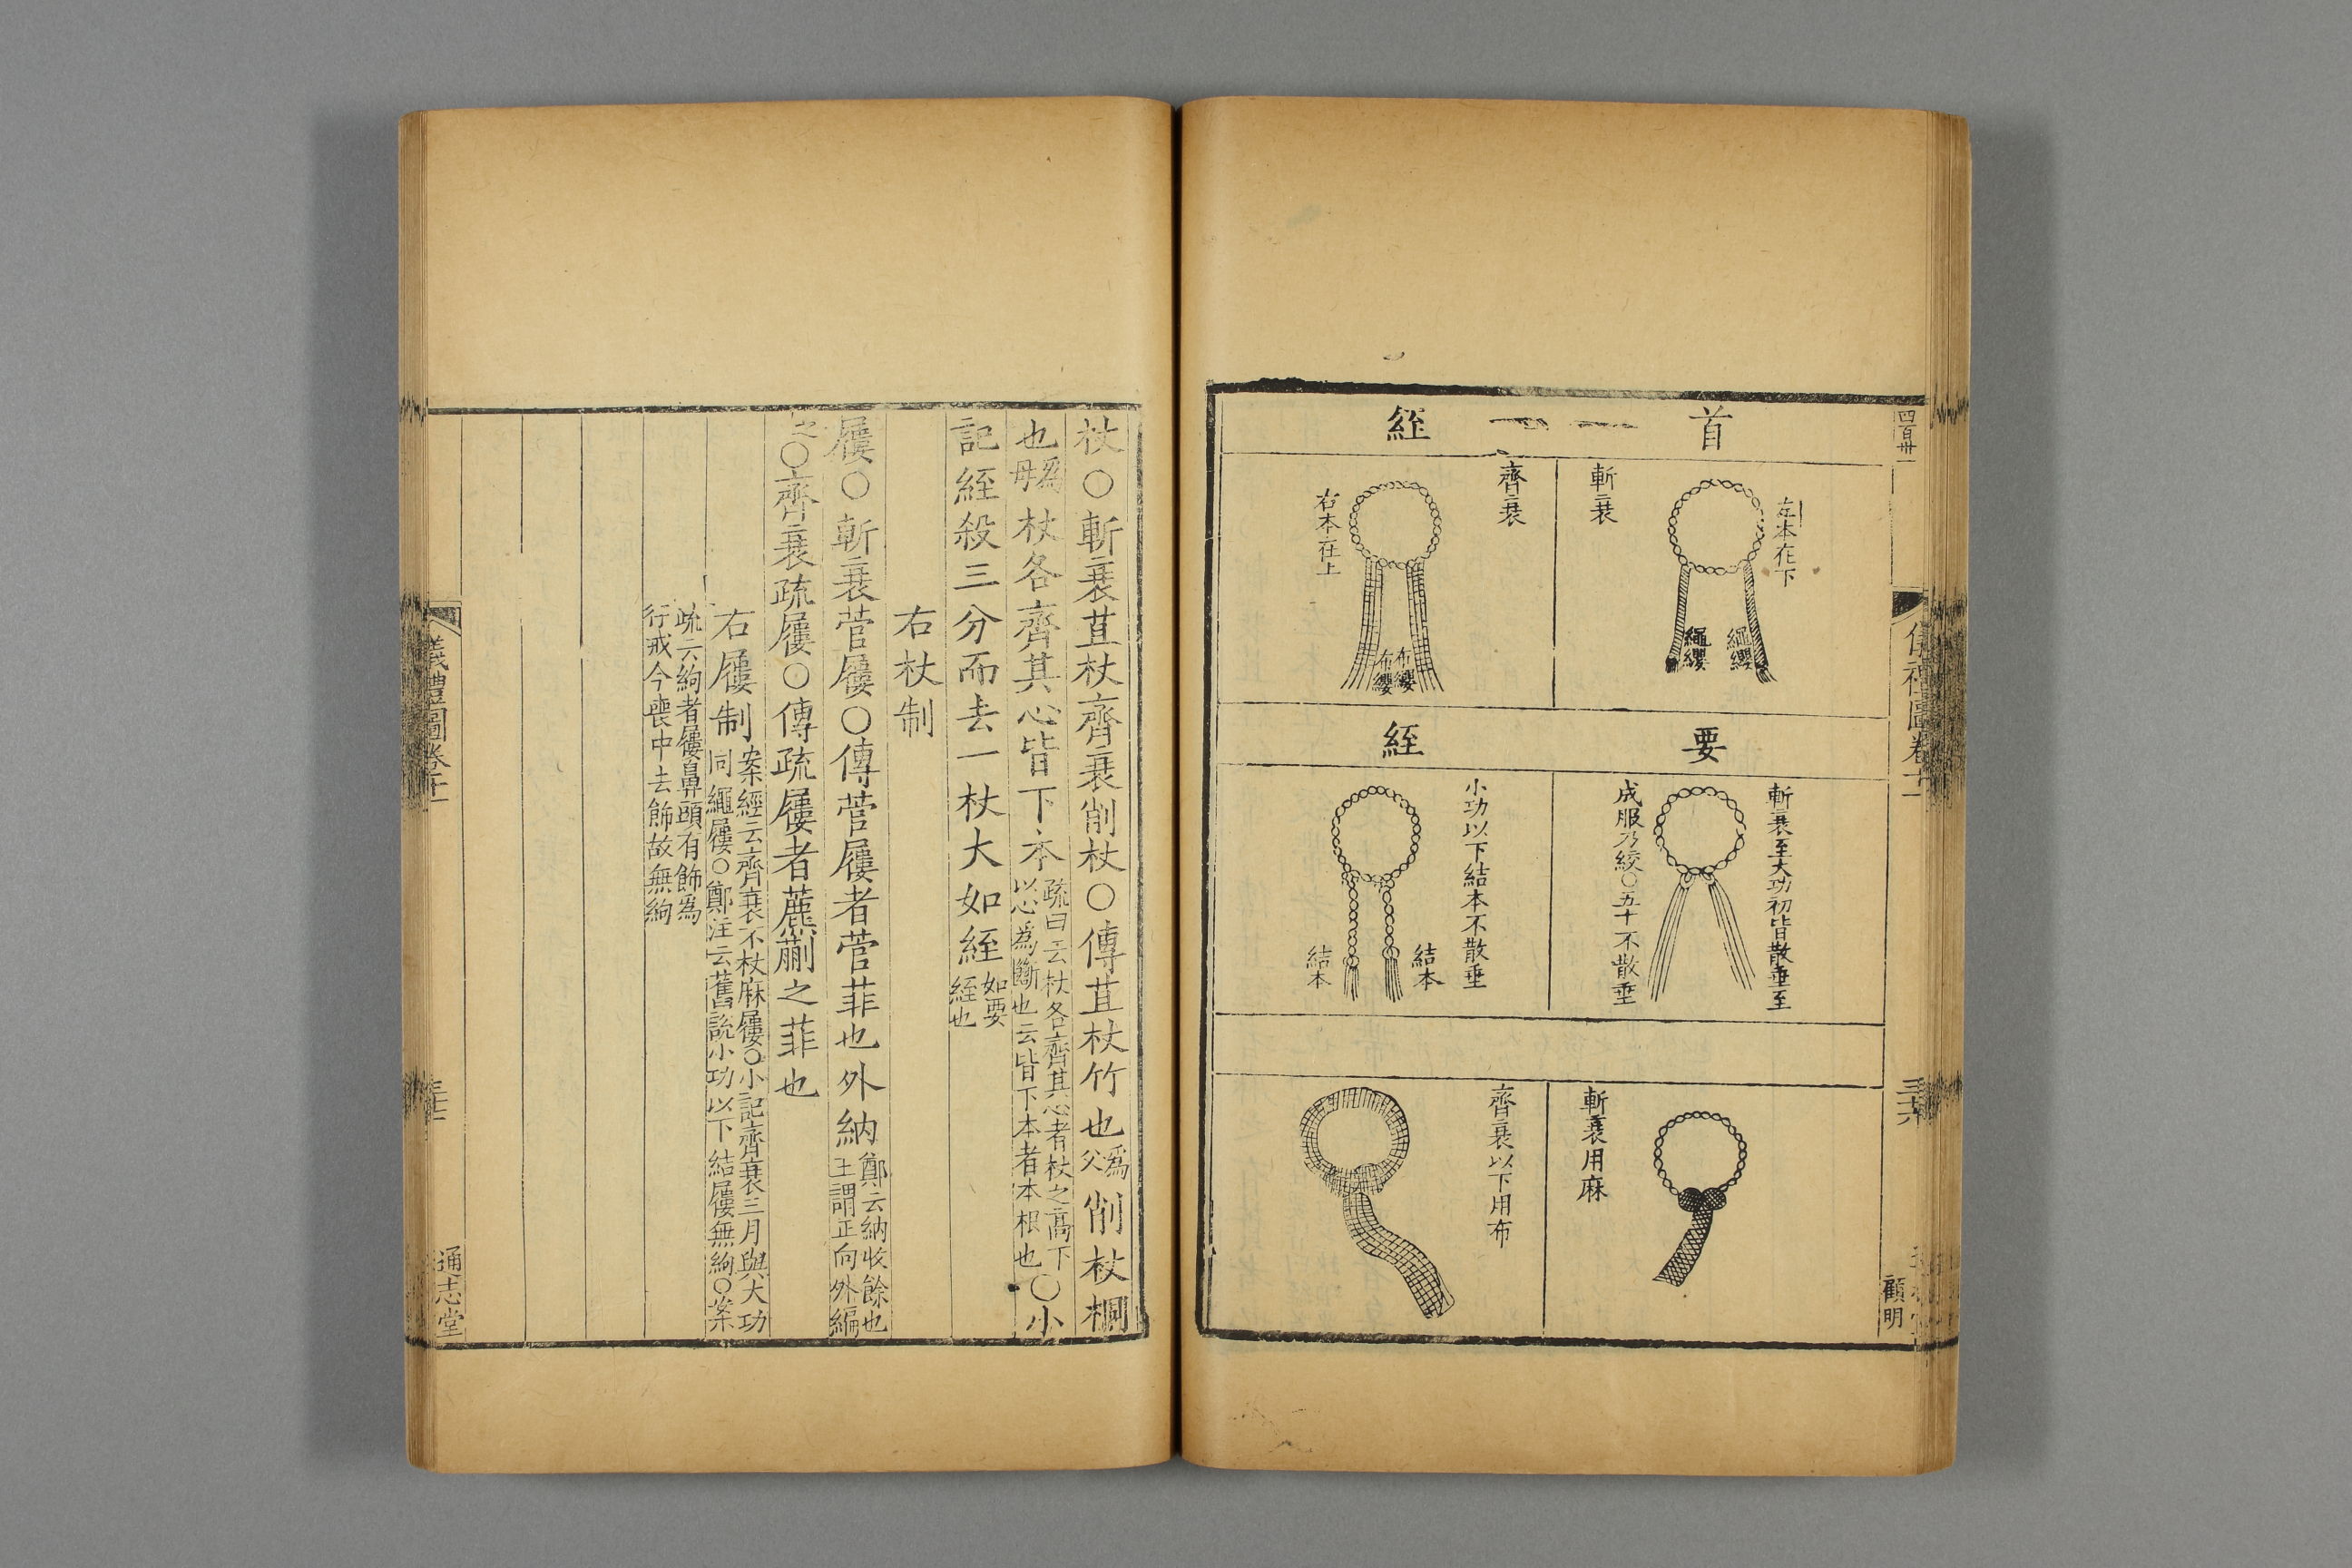 四百卅一
儀禮圖卷十一
三十六
顧明
首
絰
左本在下
繩纓
繩纓
斬衰
齊衰
布纓
布纓
右本在上
要
絰
斬衰至大功初皆散垂至
成服乃絞○五十不散垂
小功以下結本不散垂
結本
結本
斬衰用麻
齊衰以下用布
杖○斬衰苴杖齊衰削杖○傳苴杖竹也為父削杖桐
也為母杖各齊其心皆下本疏曰云杖各齊其心者杖之高下以心為斷也云皆下本者本根也○小
記絰殺三分而去一杖大如絰如要絰也
右杖制
屨○斬衰菅屨○傳菅屨者菅菲也外納鄭云納收餘也王謂正向外編
之○齊衰疏屨○傳疏屨者藨蒯之菲也
右屨制案經云齊衰不杖麻屨○小記齊衰三月與大功同繩屨○鄭注云舊說小功以下結屨無絇○案
疏云絇者屨鼻頭有飾為
行戒今喪中去飾故無絇
儀禮圖卷十一
三十七
通志堂